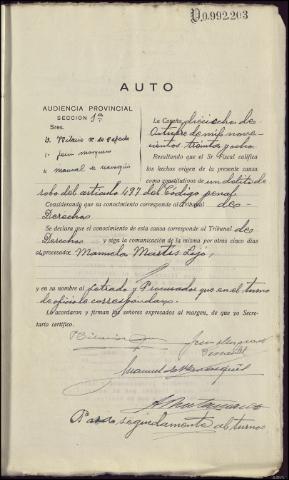 D.0.992.203
AUTO
AUDIENCIA PROVINCIAL
SECCION 1ª
Sres.
D. Hilario
" Juan Marquez
" Manuel de
La Coruña dieciocho de
Octubre de mil nove-
cientos treinta y ocho.
Resultando que el Sr Fiscal califica
los hechos origen de la presente causa
como constitutivos de un delito de
robo del artículo 497 del Código penal
Considerando que su conocimiento corresponde al Tribunal de
Derecho
Se declara que el conocimiento de esta causa corresponde al Tribunal de
Derecho y siga la comunicación de la misma por otros cinco días
a procesada Manuela
y en su nombre al Letrado y Procurador que en el turno
de oficio le corresponda
Lo acordaron y firman los señores expresados al margen, de que yo Secre-
tario certifico.
Hilario
Juan
Manuel de
seguidamente al turno